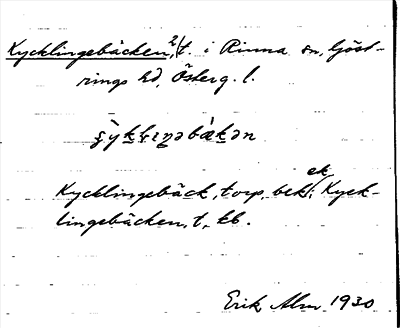 Kycklingebäcken, t. i Rinna sn, Göst-
rings hd, Österg. l.
Kycklingebäck, torp, bek; Kyck-
lingebäcken, t., kb.
Erik Alm 1930